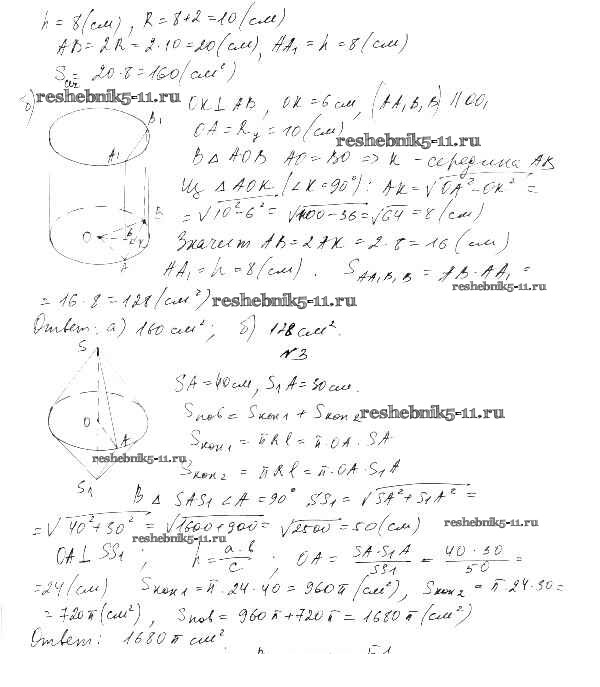 h = 8 (см), R = 8+2 = 10 (см)
AB = 2R = 2·10 = 20 (см), AA₁ = h = 8 (см)
Sсеч = 20·8 = 160 (см²)
reshebnik5-11.ru
б) OK⊥AB, OK = 6 см, (AA₁B₁B) || OO₁
OA = Rц = 10 (см)
reshebnik5-11.ru
В △AOB AO = BO => K - середина AB
Из △AOK (∠K = 90°): AK = √OA² - OK² =
= √10² - 6² = √100 - 36 = √64 = 8 (см)
Значит AB = 2AK = 2·8 = 16 (см)
AA₁ = h = 8 (см). S AA₁B₁B = AB·AA₁ =
reshebnik5-11.ru
= 16·8 = 128 (см²) reshebnik5-11.ru
B₁
A₁
O
B
K
A
Ответ: а) 160 см²; б) 128 см².
№3
S
O
A
S₁
reshebnik5-11.ru
SA = 40 см, S₁A = 30 см.
Sпов = Sкон 1 + Sкон 2 reshebnik5-11.ru
Sкон 1 = πRl = π·OA·SA
Sкон 2 = πRl = π·OA·S₁A
В △ SAS₁ ∠A = 90° SS₁ = √SA² + S₁A² =
= √40² + 30² = √1600 + 900 = √2500 = 50 (см) reshebnik5-11.ru
reshebnik5-11.ru
OA⊥SS₁; h = a·b/c; OA = SA·S₁A/SS₁ = 40·30/50 =
= 24 (см) Sкон 1 = π·24·40 = 960π (см²), Sкон 2 = π·24·30 =
= 720π (см²), Sпов = 960π + 720π = 1680π (см²)
Ответ: 1680π см².